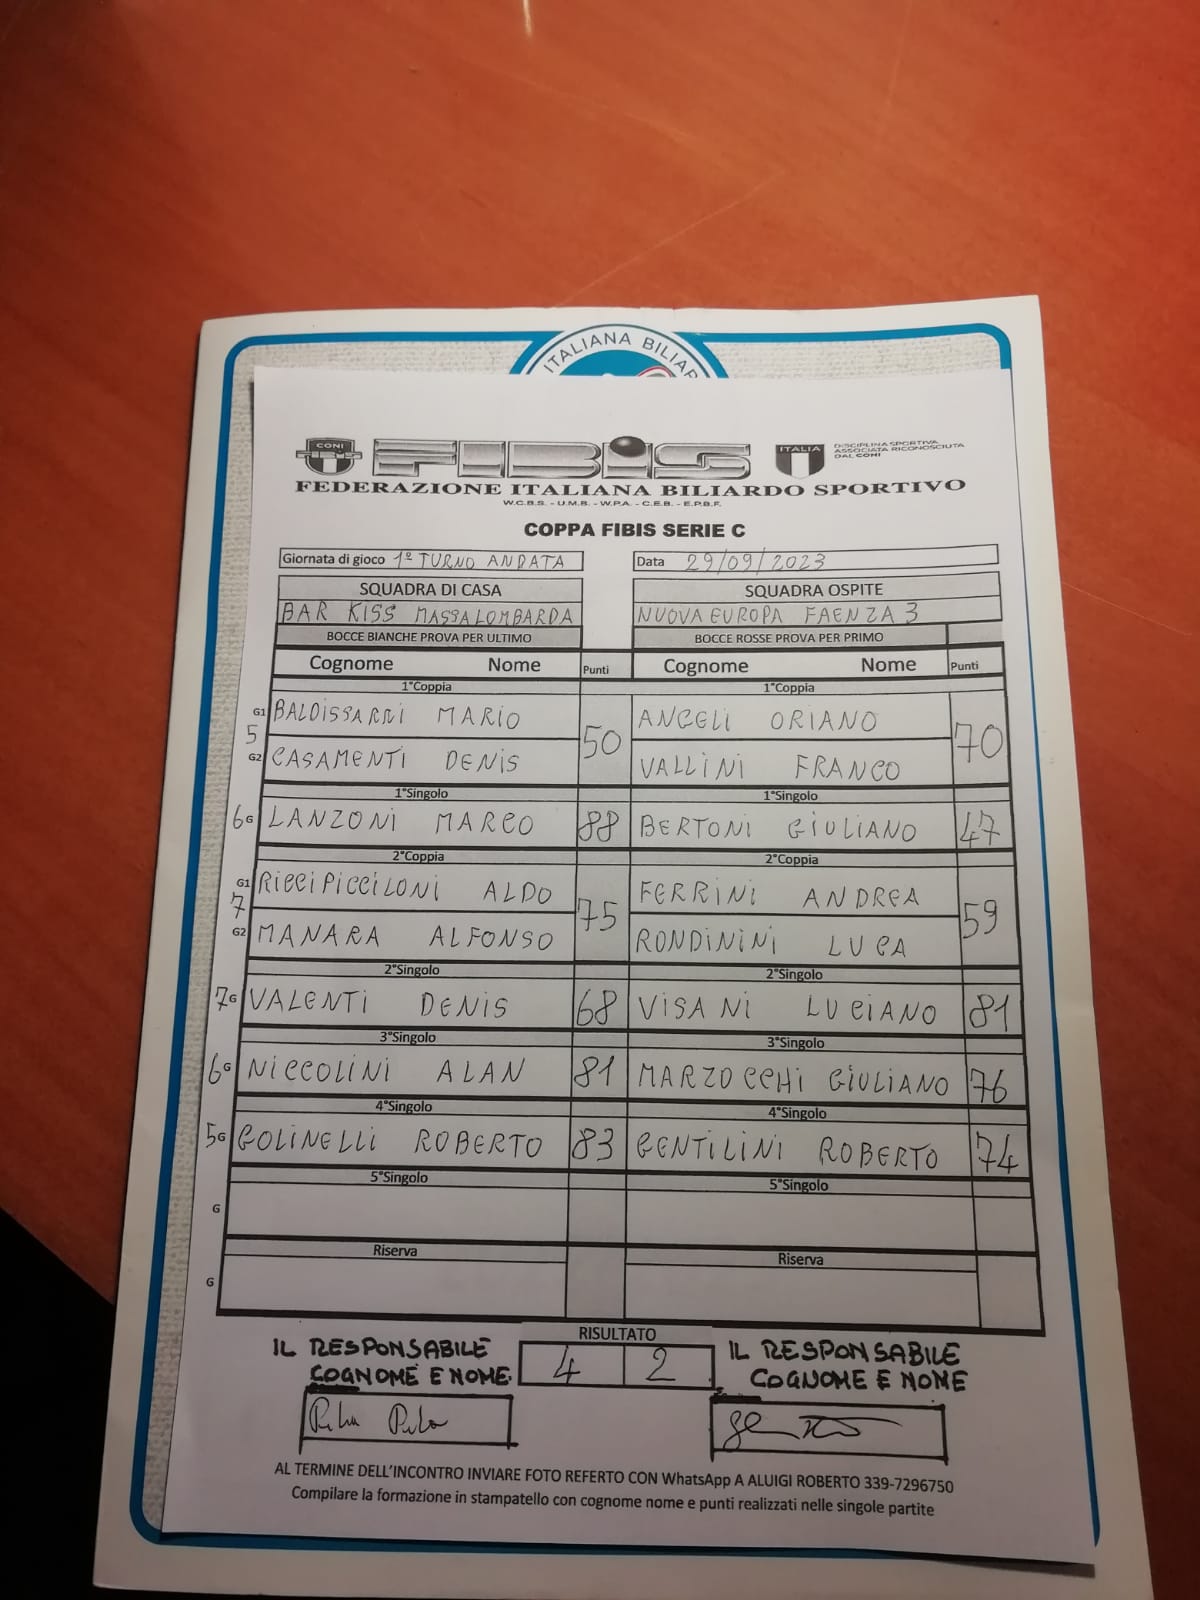 ITALIANA BILIAR
CONI
FIBIS
FIBiS
ITALIA
DISCIPLINA SPORTIVA
ASSOCIATA RICONOSCIUTA
DAL CONI
FEDERAZIONE ITALIANA BILIARDO SPORTIVO
W.C.B.S. - U.M.B. - W.P.A. - C.E.B. - E.P.B.F.
COPPA FIBIS SERIE C
Giornata di gioco 1º TURNO ANDATA Data 29/09/2023
SQUADRA DI CASA SQUADRA OSPITE
BAR KISS MASSALOMBARDA NUOVA EUROPA FAENZA 3
BOCCE BIANCHE PROVA PER ULTIMO BOCCE ROSSE PROVA PER PRIMO
Cognome Nome Punti Cognome Nome Punti
1°Coppia 1°Coppia
G1 BALDISSARRI MARIO ANGELI ORIANO
5 50 70
G2 CASAMENTI DENIS VALLINI FRANCO
1°Singolo 1°Singolo
6 G LANZONI MARCO 88 BERTONI GIULIANO 47
2°Coppia 2°Coppia
G1 RICCI PICCILONI ALDO FERRINI ANDREA
7 75 59
G2 MANARA ALFONSO RONDININI LUCA
2°Singolo 2°Singolo
7 G VALENTI DENIS 68 VISANI LUCIANO 81
3°Singolo 3°Singolo
6 G NICCOLINI ALAN 81 MARZOCCHI GIULIANO 76
4°Singolo 4°Singolo
5 G GOLINELLI ROBERTO 83 GENTILINI ROBERTO 74
5°Singolo 5°Singolo
G
Riserva Riserva
G
RISULTATO
IL RESPONSABILE 4 2 IL RESPONSABILE
COGNOME E NOME. COGNOME E NOME
AL TERMINE DELL'INCONTRO INVIARE FOTO REFERTO CON WhatsApp A ALUIGI ROBERTO 339-7296750
Compilare la formazione in stampatello con cognome nome e punti realizzati nelle singole partite